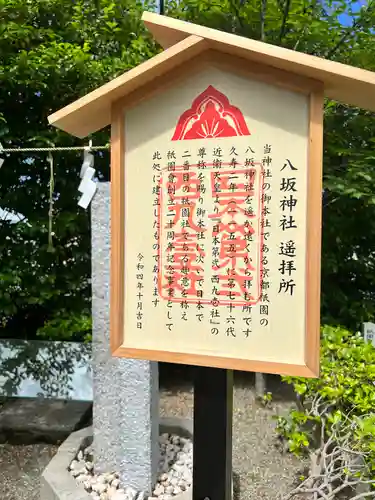 八坂神社 遥拝所
当神社の御本社である京都祇園の
八坂神社を遥か遠くから拝む所です
久寿二年(一一五五)に第七十六代
近衛天皇 日本第 西九壱社」の
尊称を賜り御本社に次いで日本で
二番目の祇園社である 意を称え
祇園會創立二十周年記念事業として
此処に建立したものであります
令和四年十月吉日